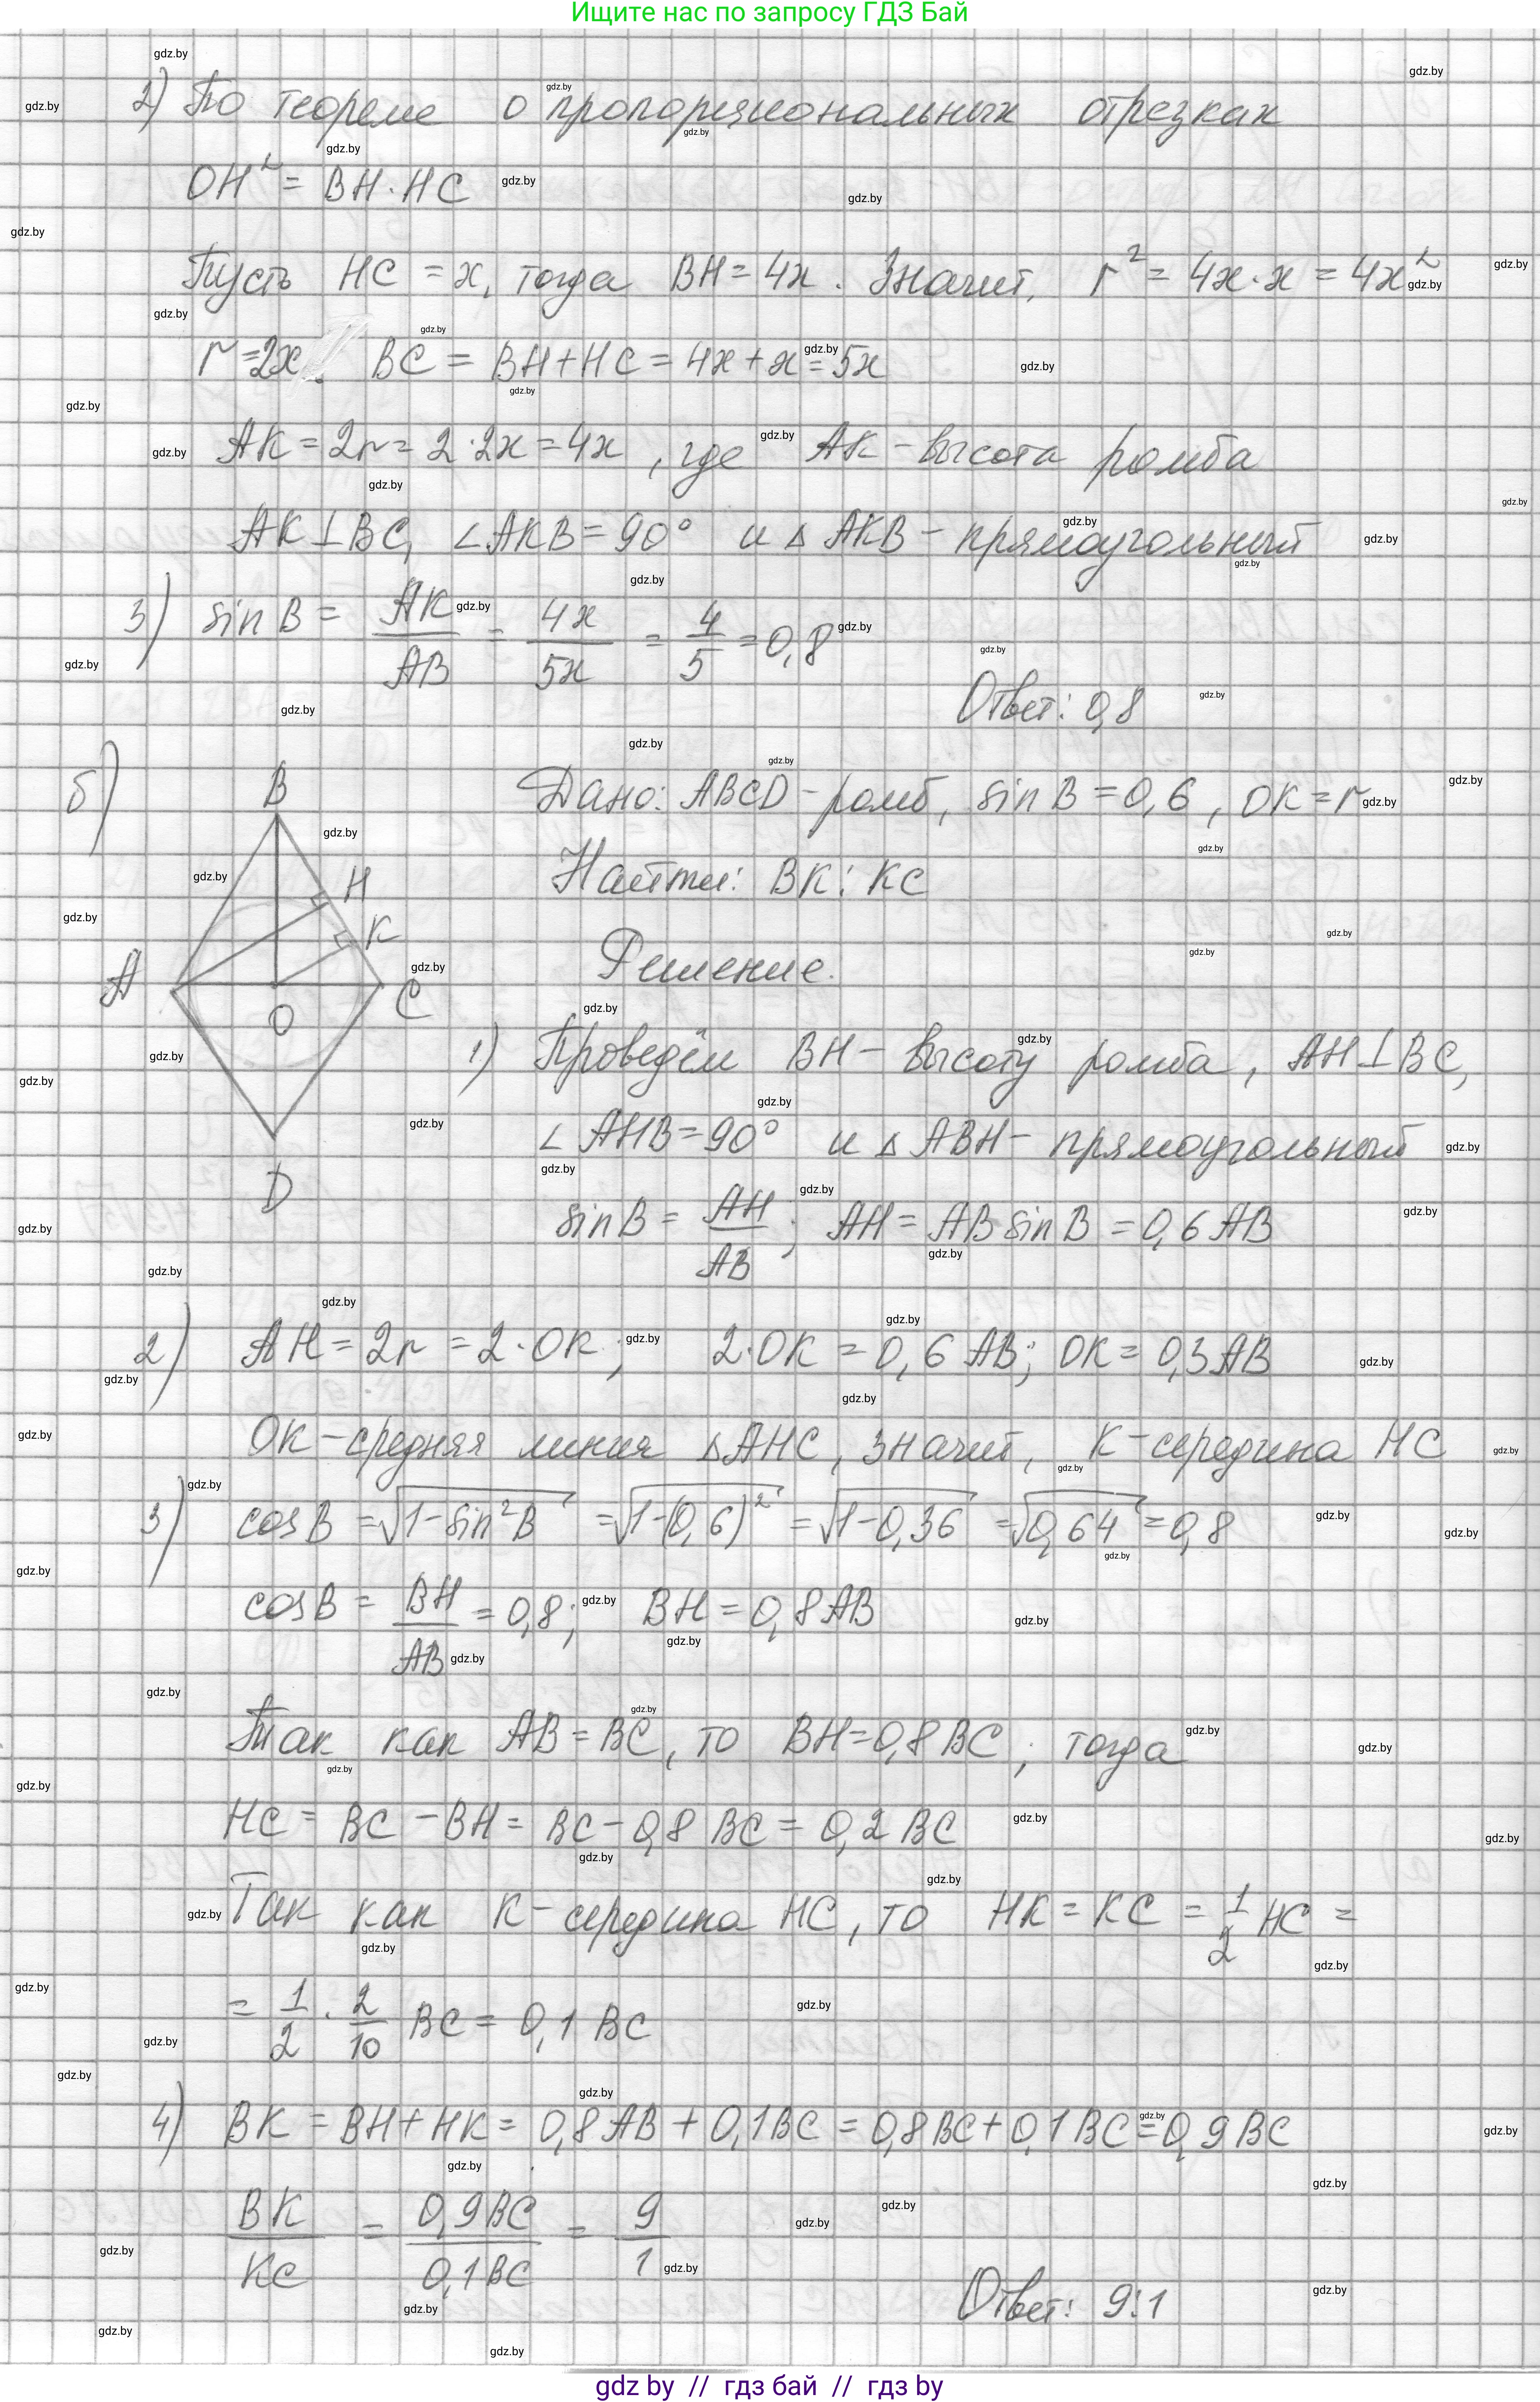 Ищите нас по запросу ГДЗ Бай
2) По теореме о пропорциональных отрезках
OH² = BH · HC
Пусть HC = x, тогда BH = 4x. Значит, r² = 4x·x = 4x²
r = 2x. BC = BH + HC = 4x + x = 5x
AK = 2r = 2·2x = 4x, где AK – высота ромба
AK ⊥ BC, ∠AKB = 90° и △AKB – прямоугольный
3) sin B = AK/AB = 4x/5x = 4/5 = 0,8
Ответ: 0,8
б)
B
H
K
A
C
O
D
Дано: ABCD – ромб, sin B = 0,6, OK = r
Найти: BK : KC
Решение.
1) Проведём BH – высоту ромба, AH ⊥ BC,
∠AHB = 90° и △ABH – прямоугольный
sin B = AH/AB; AH = AB sin B = 0,6 AB
2) AH = 2r = 2·OK; 2·OK = 0,6 AB; OK = 0,3 AB
OK – средняя линия △AHC, значит, K – середина HC
3) cos B = √(1 - sin²B) = √(1 - (0,6)²) = √(1 - 0,36) = √(0,64) = 0,8
cos B = BH/AB = 0,8; BH = 0,8 AB
Так как AB = BC, то BH = 0,8 BC; тогда
HC = BC - BH = BC - 0,8 BC = 0,2 BC
Так как K – середина HC, то HK = KC = 1/2 HC =
= 1/2 · 2/10 BC = 0,1 BC
4) BK = BH + HK = 0,8 AB + 0,1 BC = 0,8 BC + 0,1 BC = 0,9 BC
BK/KC = 0,9 BC/0,1 BC = 9/1
Ответ: 9:1
gdz by // гдз бай // гдз by